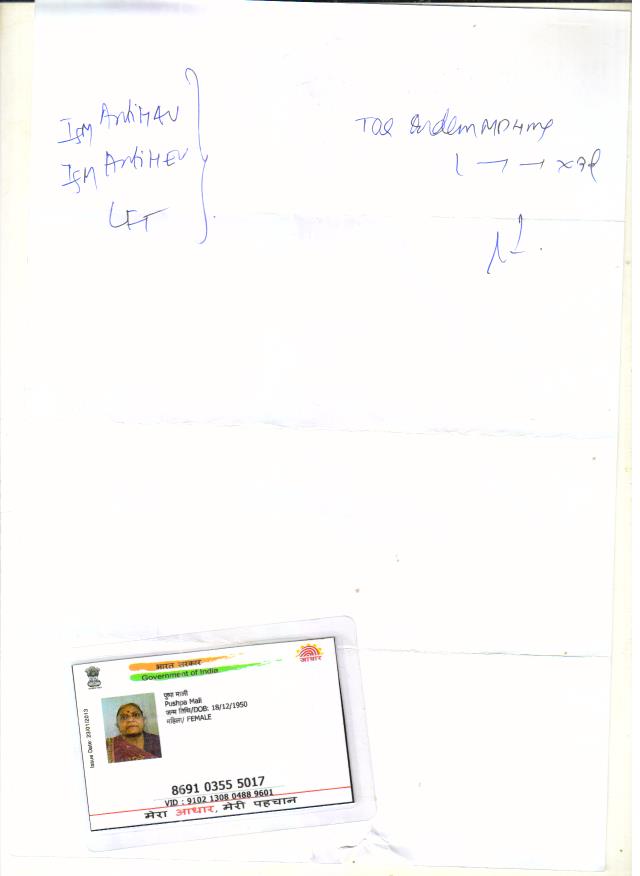 IgM AntiHAV
IgM AntiHEV
LFT
Tab Ondem MD 4mg
भारत सरकार
Government of India
आधार
Issue Date: 23/01/2013
पुष्पा माली
Pushpa Mali
जन्म तिथि/DOB: 18/12/1950
महिला/ FEMALE
8691 0355 5017
VID : 9102 1308 0488 9601
मेरा आधार, मेरी पहचान